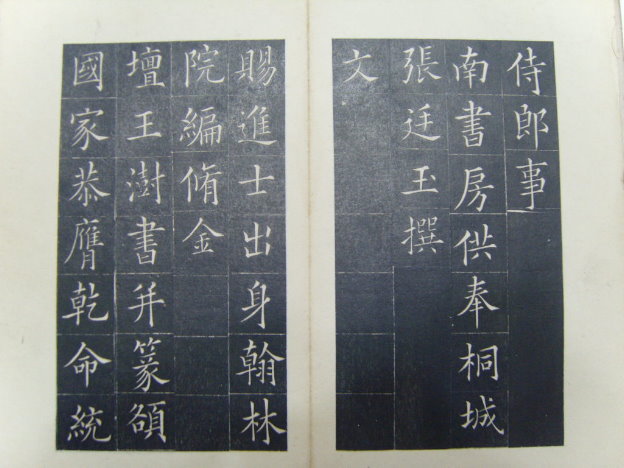 侍郎事
南書房供奉桐城
張廷玉撰
文
賜進士出身翰林
院編脩金
壇王澍書并篆額
國家恭膺乾命統